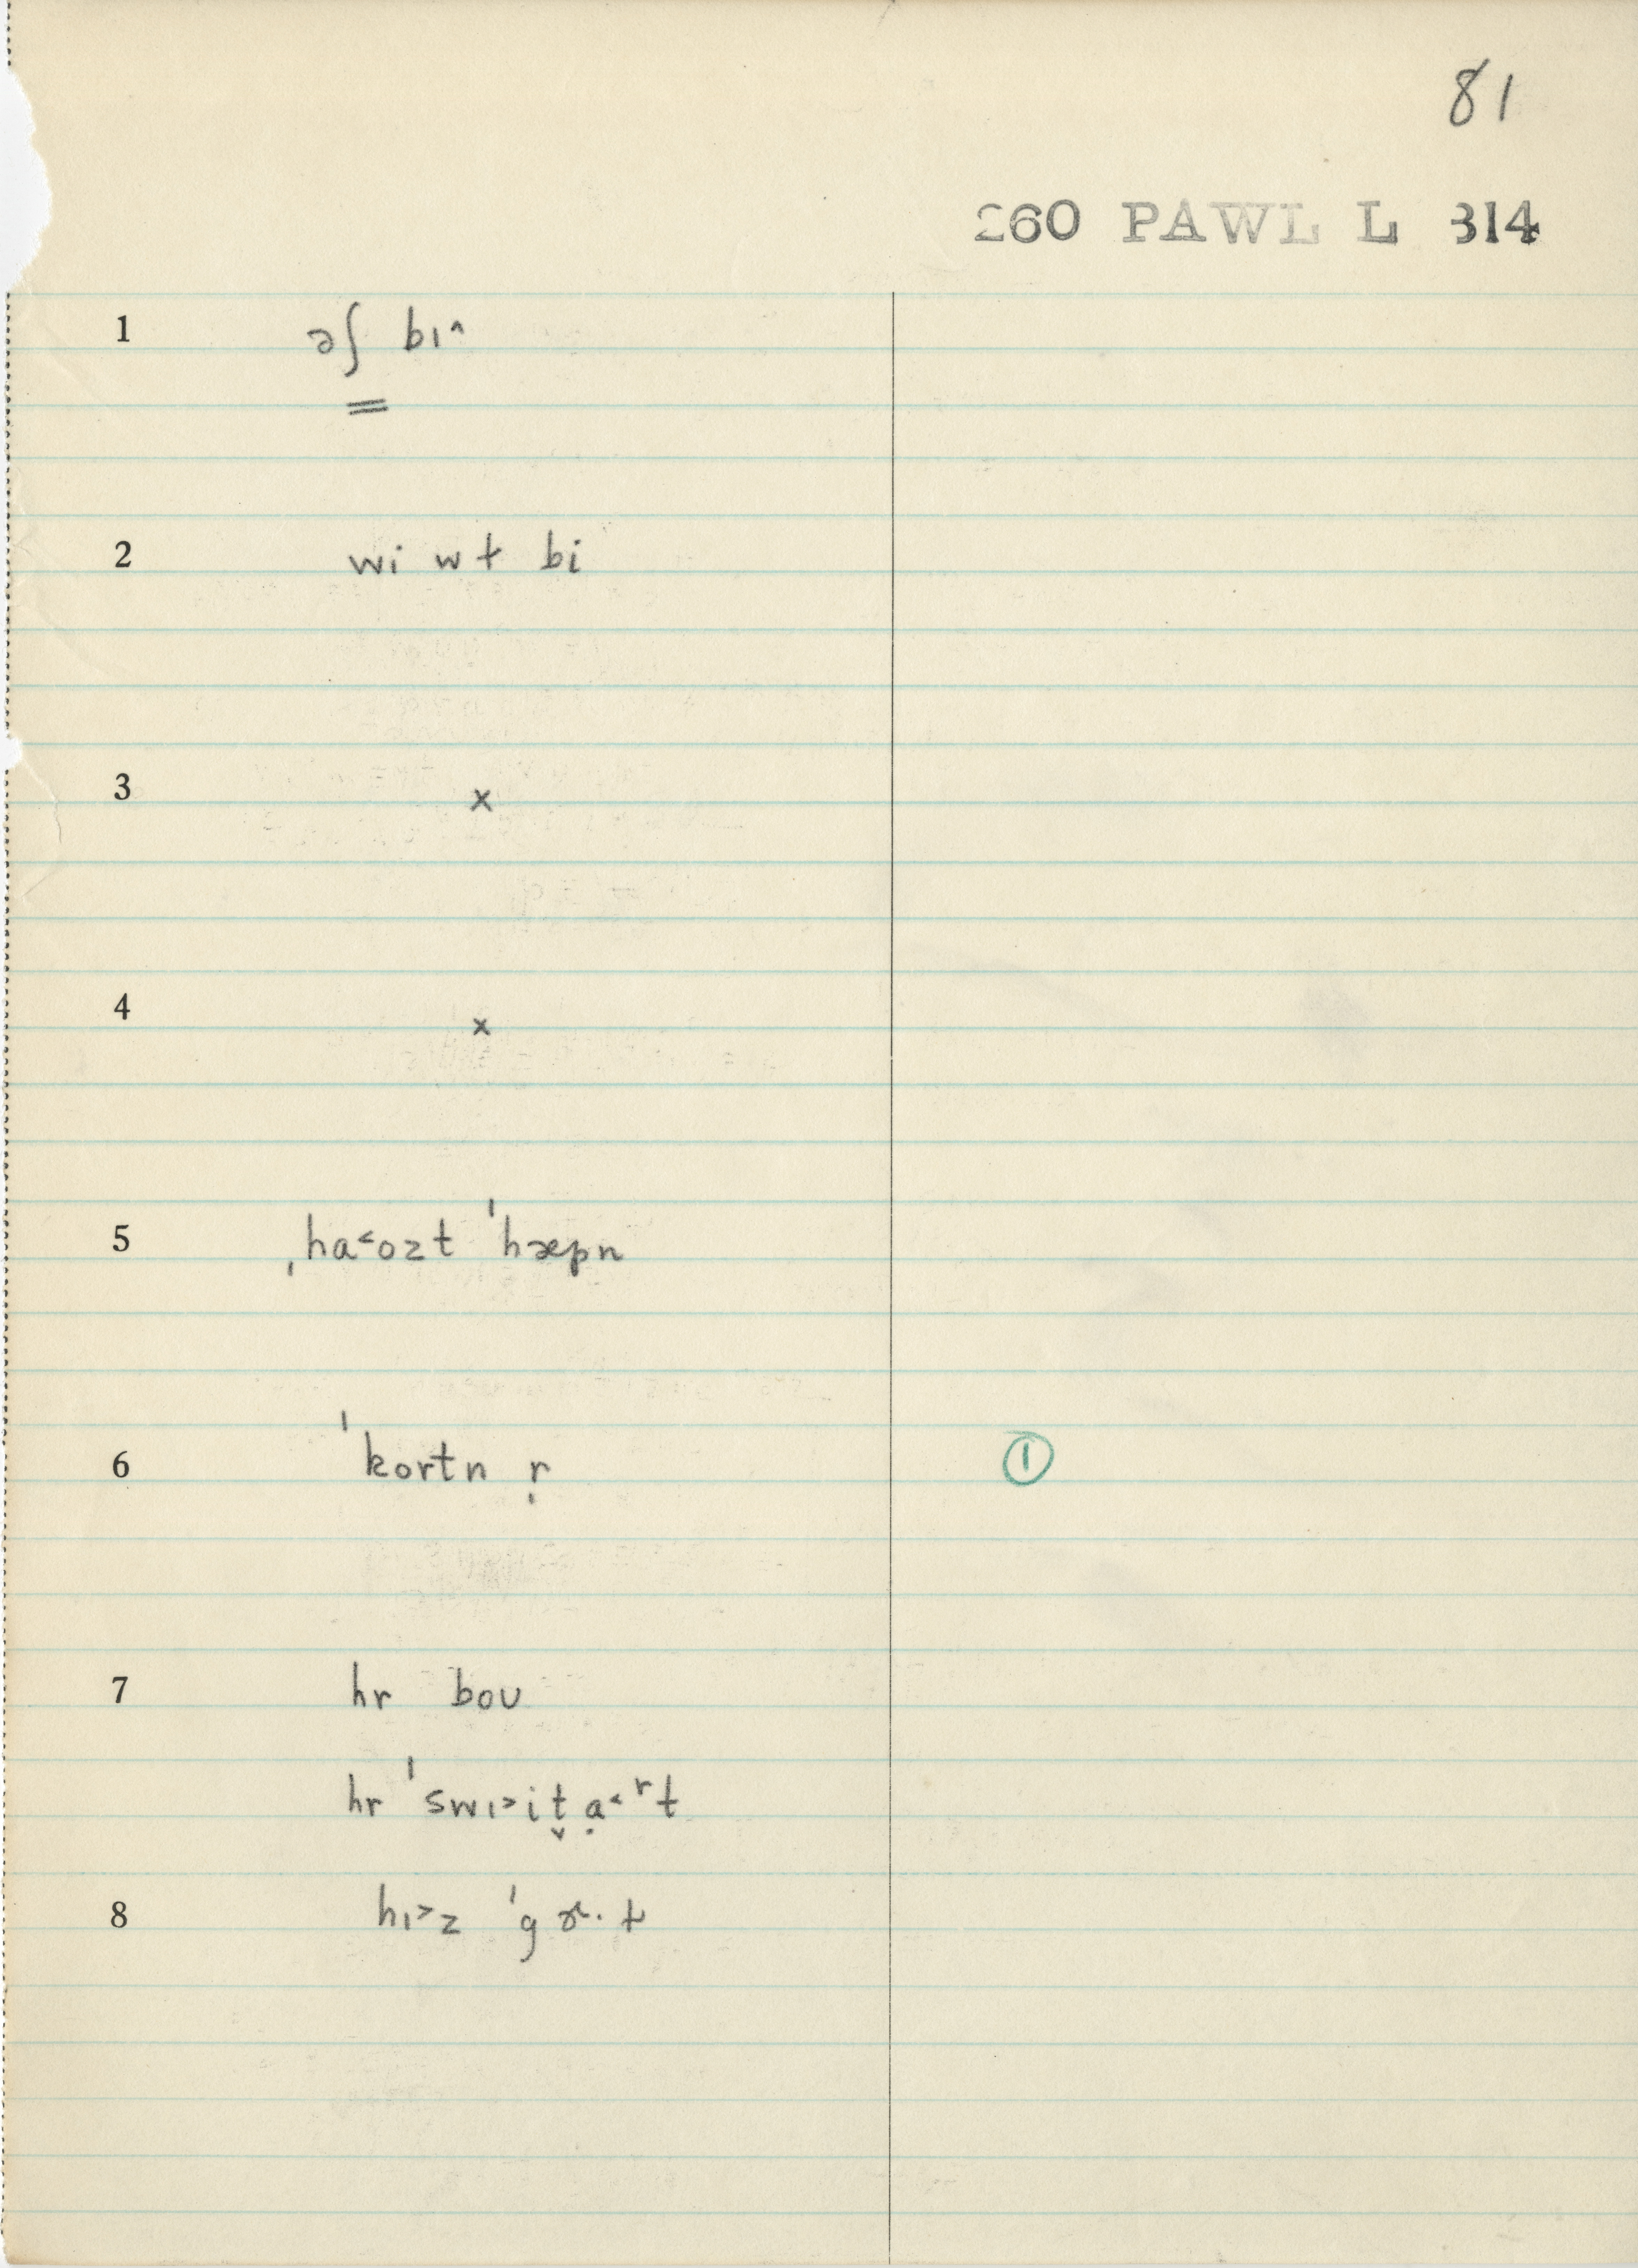 81
260 PAWL L 314
1 əʃ bɪ^
2 wi wɫ bi
3 x
4 x
5 ˌha˂ozt ˈhæpn
6 ˈkortn ṛ ①
7 hr bou
hr ˈswɪ˃it̬ ạ˂ʳt
8 hɪ˃z ˈgɚ·ɫ